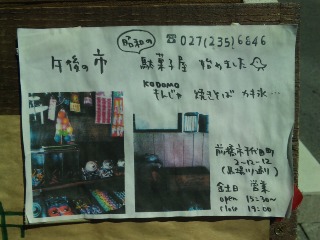 昭和の
☎027(235)6846
午後の市 駄菓子屋 始めました
KODOMO
もんじゃ 焼きそば カキ氷…
前橋市千代田町
2-12-12
金土日 営業
open 15:30~
close 19:00